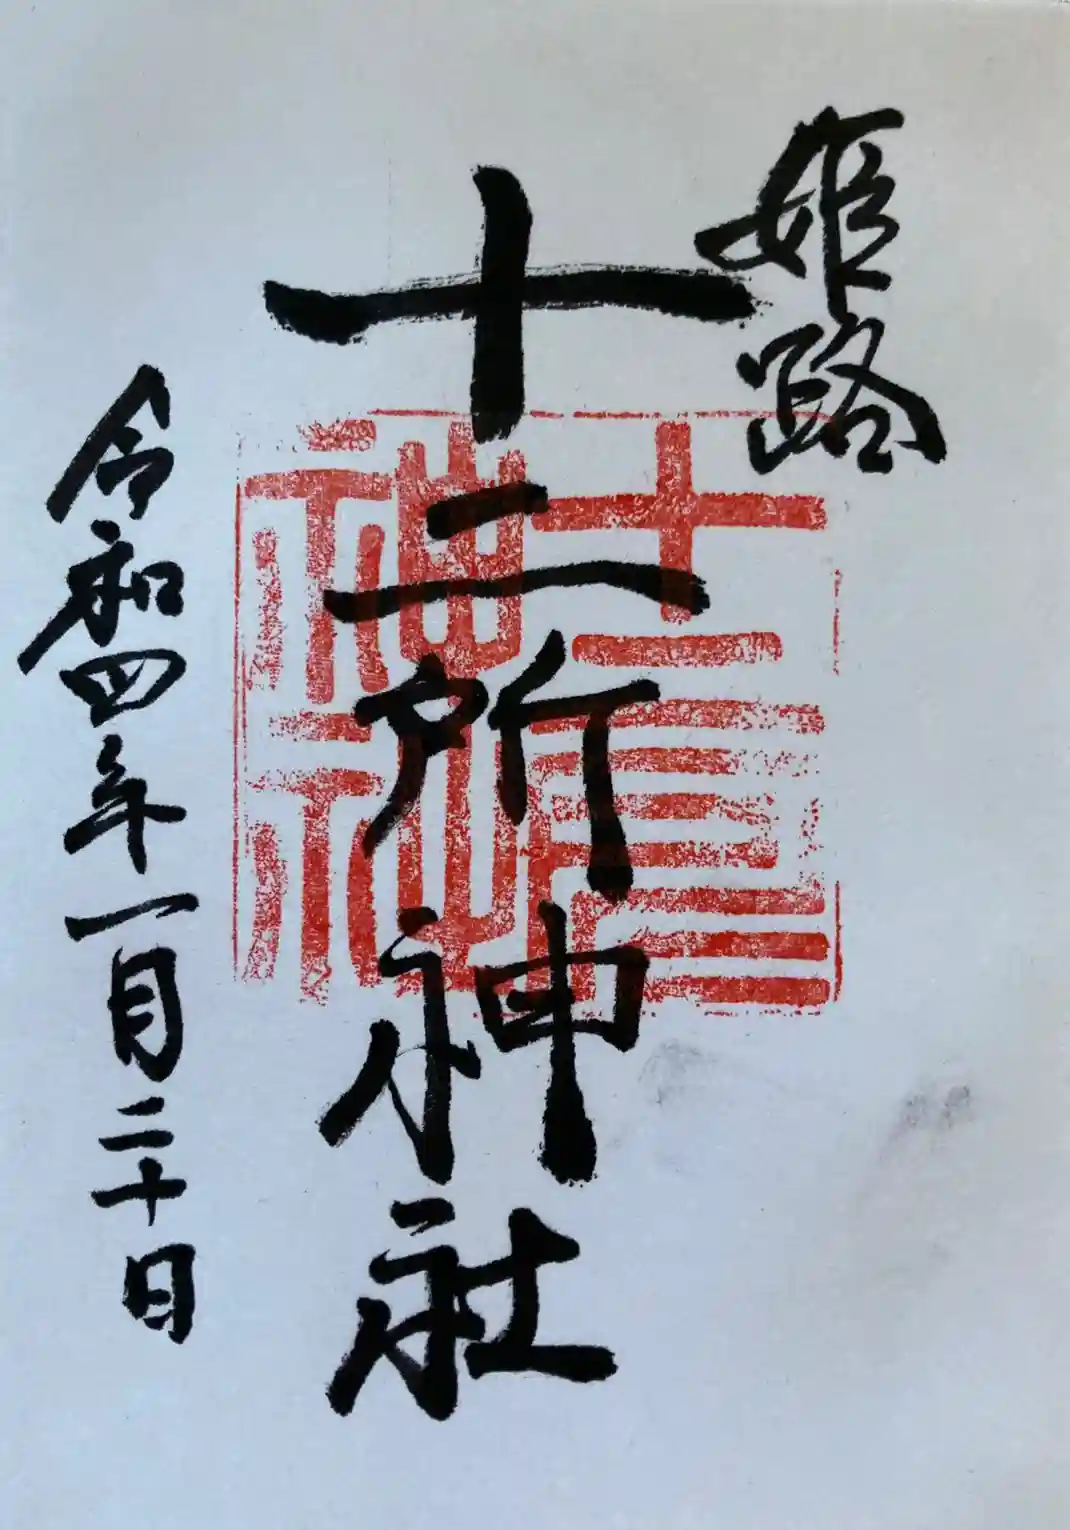 姫路
十二所神社
令和四年一月二十日
十二所神社